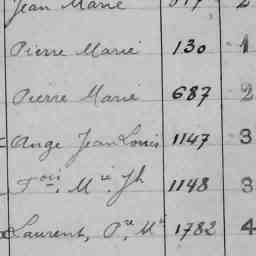 Jean Marie 2
Pierre Marie 130 1
Pierre Marie 687 2
Ange Jean Louis 1147 3
Fois. Mie. Jh 1148 3
Laurent, Pre. Mie 1782 4